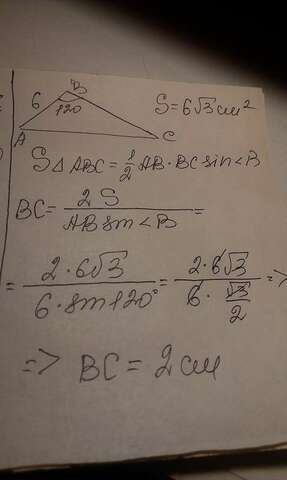 B
6 120 S=6√3см²
A C
S△ABC=1/2 AB·BC sin∠B
BC= 2S / AB sin∠B =
= 2·6√3 / 6·sin120° = 2·6√3 / 6·√3/2 =>
=> BC = 2см